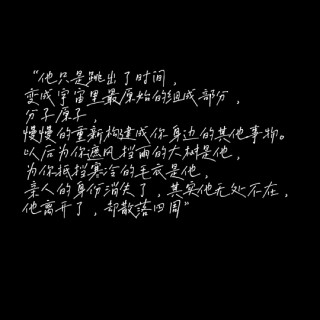 “他只是跳出了时间，
变成宇宙里最原始的组成部分，
分子原子，
慢慢的重新构建成你身边的其他事物。
以后为你遮风挡雨的大树是他，
为你抵挡寒冷的毛衣是他，
亲人的身份消失了，其实他无处不在，
他离开了，却散落四周”